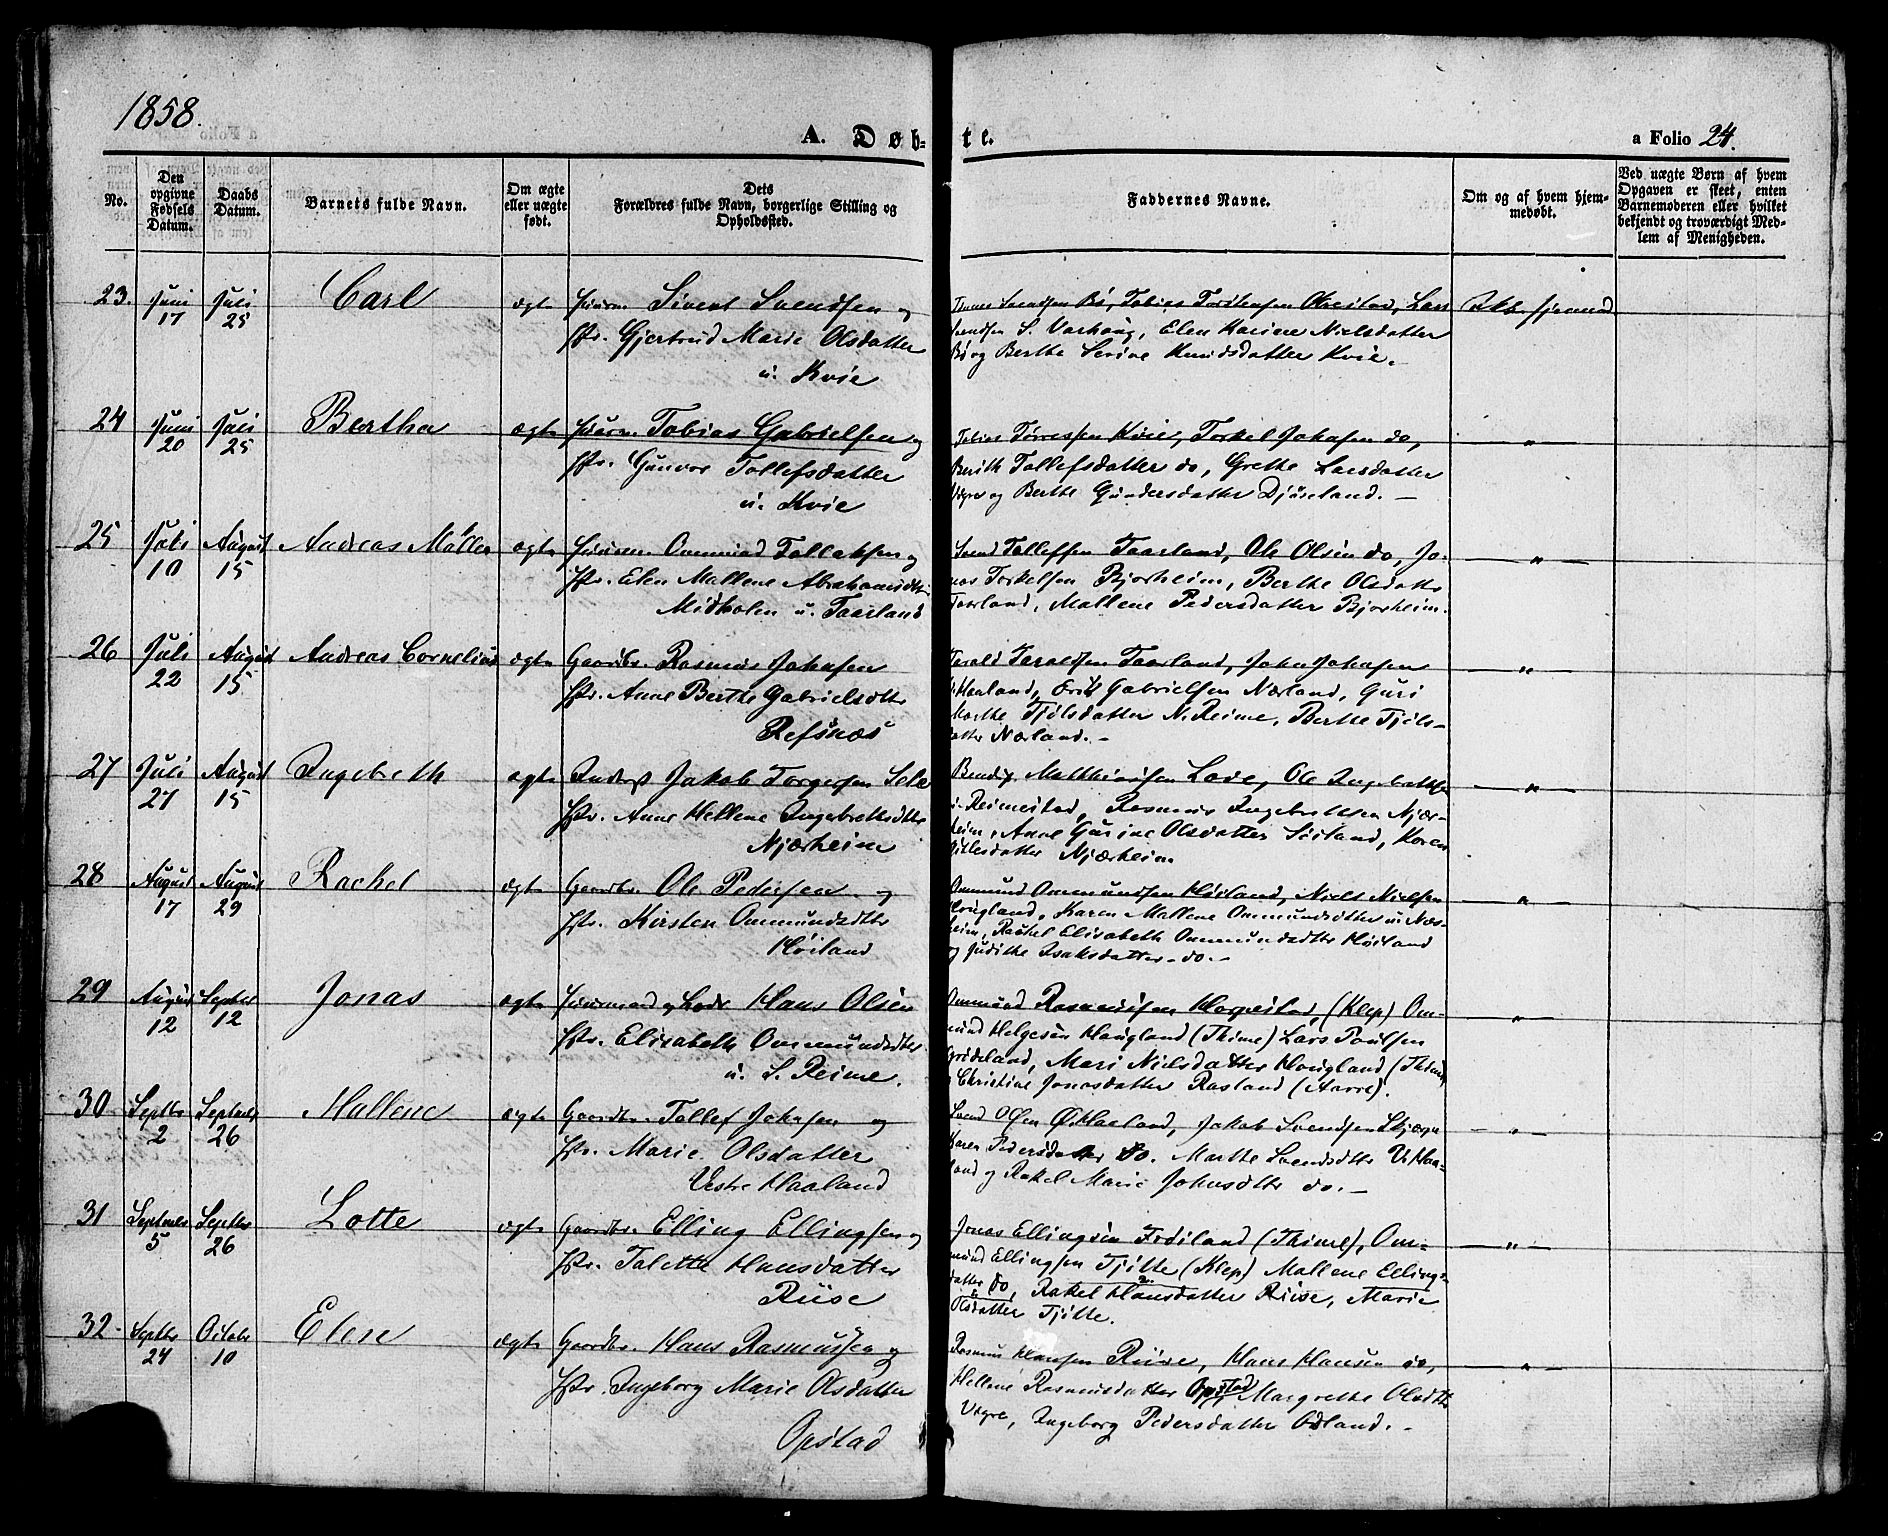 1858.
A. Døb-
te.
a Folio 24.
No.
Den opgivne Fødsels Datum.
Daabs Datum.
Barnets fulde Navn.
Om ægte eller uægte født.
Dets Forældres fulde Navn, borgerlige Stilling og Opholdssted.
Faddernes Navne.
Om og af hvem hjemmedøbt.
Ved uægte Børn af hvem Opgaven er skeet, enten Barnemoderen eller hvilket bekjendt og troværdigt Medlem af Menigheden.
23. Juni 17 Juli 25 Carl ægte Sivert Svendsen og
Hstr. Gjertrud Marie Olsdatter
u. Kvie
Svendsen Bø, Tobias Torkensen Obrestad, Lars
Svendsen S. Varhoug, Elen Karine Nielsdatter
Bø og Berthe Serine Knudsdatter Kvie.
Ikke hjemmed
24 Juni 20 Juli 25 Bertha ægte Tobias Gabrielsen og
Hstr. Gunvor Tollefsdatter
u. Kvie
Tobias Tørressen Kvie, Torkel Johnsen do,
Berith Tollefsdatter do, Grethe Larsdatter
og Berthe Gundersdatter Djusland. -
"
25 Juli 10 August 15 Andreas Mallen ægte Ommund Tollaksen og
Hstr. Elen Mallene Abrahamsdtr
Midholen u. Taarland
Svend Tollefsen Taarland, Ole Olsen do, Jo-
nas Torkelsen Bjorheim, Berthe Olsdatter
Taarland, Mallene Pedersdatter Bjorheim.
"
26 Juli 22 August 15 Andreas Cornelius ægte Gaardbr. Rasmus Johnsen
Hstr. Anne Berthe Gabrielsdtr
Refsnæs
Tarald Taraldsen Taarland, John Johnsen
Haaland, Erik Gabrielsen Nærland, Guri
Marthe Tjølsdatter N. Reime, Berthe Tjøls-
datter Nærland. -
"
27 Juli 27 August 15 Ingebreth ægte Inderst Jakob Torgersen Sele
Hstr. Anne Hellene Ingebretsdtr
Njærheim
Bendix Mathiasen Lode, Ole Ingebretsen
Reimestad, Rasmus Ingebretsen Njær-
heim, Anne Gurine Olsdatter Seiland, Karen
datter Njærheim
"
28 August 17 August 29 Rachel ægte Gaardbr. Ole Pedersen og
Hstr. Kirsten Ommundsdtr
Høiland
Ommund Ommundsen Høiland, Niels Nielsen
Hougland, Karen Mallene Ommundsdtter u. Nær-
heim, Rachel Elisabeth Ommundsdtr Høiland
og Judithe Isaksdatter do. -
"
29 August 12 Septbr 12 Jonas ægte Huusmand og Hans Olsen
Hstr. Elisabeth Ommundsdtr
u. S. Reime.
Ommund Rasmusen Horpestad, (Klep) Om-
mund Helgesen Haugland (Thime) Lars Poulsen
Grødeland, Mari Nielsdatter Hougland (Thime)
Christine Jonasdatter Rasland (Aarre).
"
30 Septbr 2 Septmbr 26 Mallene ægte Gaardbr. Tollef Johnsen og
Hstr. Marie Olsdatter
Vestre Haaland
Svend Olsen Ø. Haaland, Jakob Svendsen
Karen Pedersdatter do. Marthe Svendsdtter V. Haa-
land og Rakel Marie Johnsdtter do. -
"
31 Septmbr 5 Septbr 26 Lotte ægte Gaardbr. Elling Ellingsen og
Hstr. Talette Hansdatter
Riise
Jonas Ellingsen Frøiland (Thime), Om-
mund Ellingsen Tjøtte (Klep) Mallene Ellings-
datter do, Rakel Hansdatter Riise, Marie
Olsdatter Tjøtte.
"
32 Septbr 24 Octobr 10 Elen ægte Gaardbr. Hans Rasmussen og
Hstr. Ingeborg Marie Olsdatter
Opstad
Rasmus Hansen Riise, Hans Hansen do,
Hellene Rasmusdatter Opstad Margrethe Olsdtr
Ingeborg Pedersdatter Odland. -
"